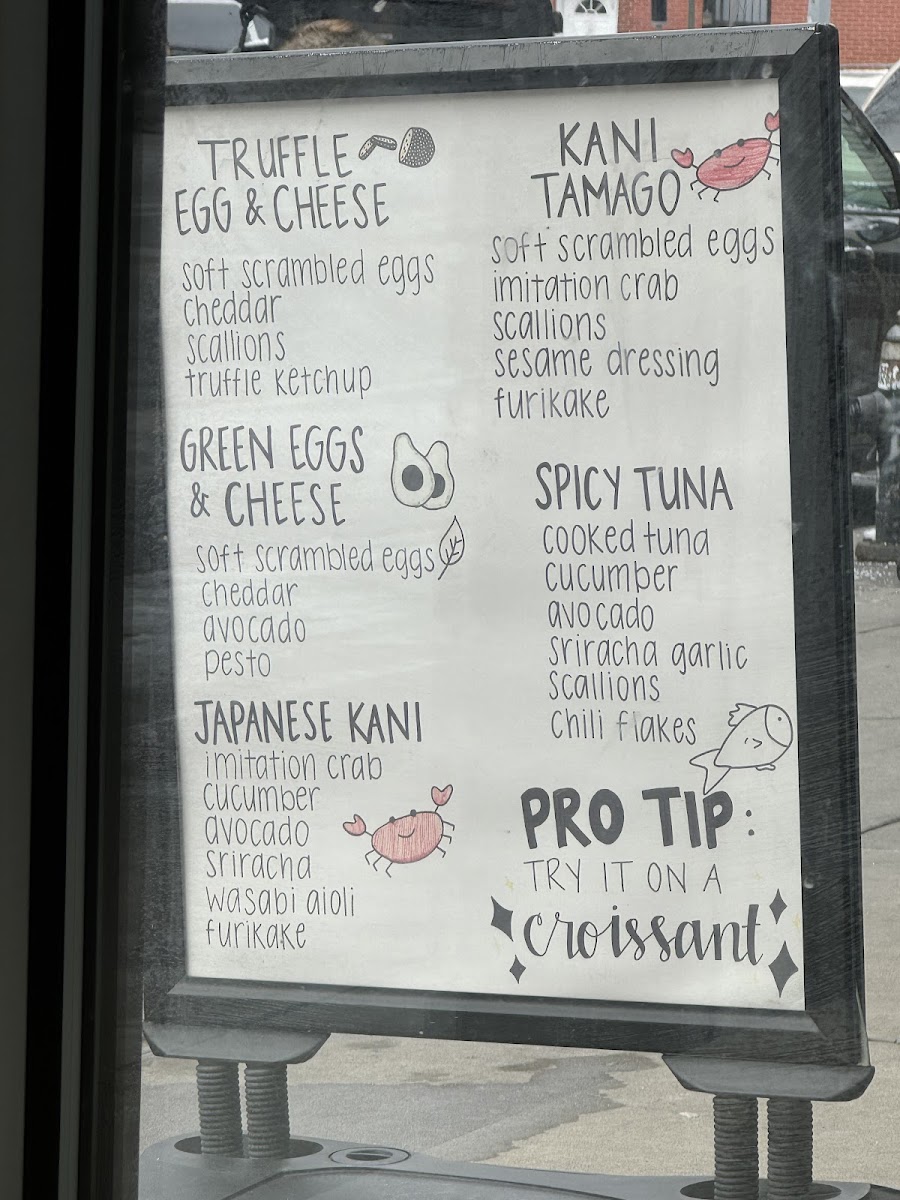 TRUFFLE
EGG & CHEESE
soft scrambled eggs
cheddar
scallions
truffle ketchup
GREEN EGGS
& CHEESE
soft scrambled eggs
cheddar
avocado
pesto
JAPANESE KANI
imitation crab
cucumber
avocado
sriracha
wasabi aioli
furikake
KANI
TAMAGO
soft scrambled eggs
imitation crab
scallions
sesame dressing
furikake
SPICY TUNA
cooked tuna
cucumber
avocado
sriracha garlic
scallions
chili flakes
PRO TIP:
TRY IT ON A
croissant